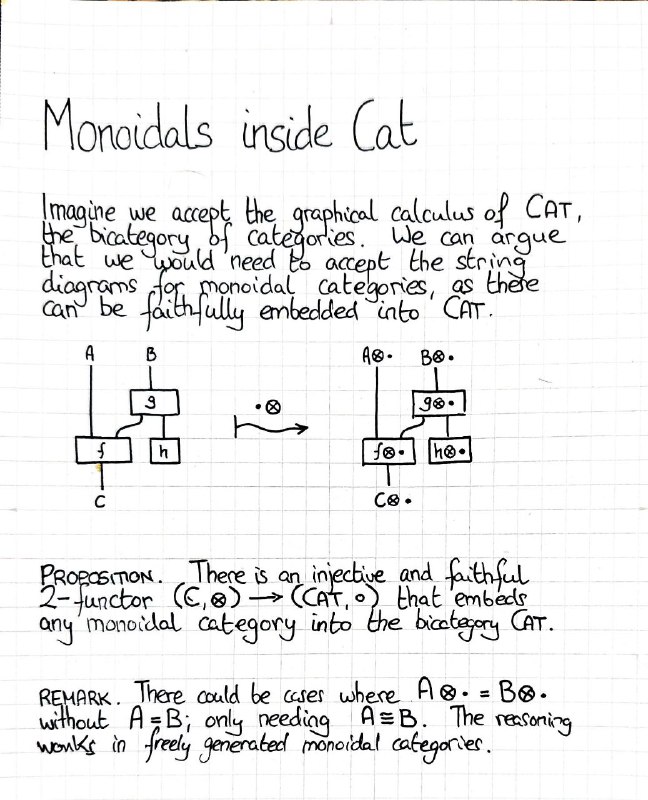 Monoidals inside Cat
Imagine we accept the graphical calculus of CAT,
the bicategory of categories. We can argue
that we would need to accept the string
diagrams for monoidal categories, as there
can be faithfully embedded into CAT.
A B A⊗• B⊗•
g •⊗ g⊗•
f h f⊗• h⊗•
C C⊗•
PROPOSITION. There is an injective and faithful
2-functor (ℂ,⊗) → (CAT,∘) that embeds
any monoidal category into the bicategory CAT.
REMARK. There could be cases where A⊗• = B⊗•
without A=B; only needing A≡B. The reasoning
works in freely generated monoidal categories.